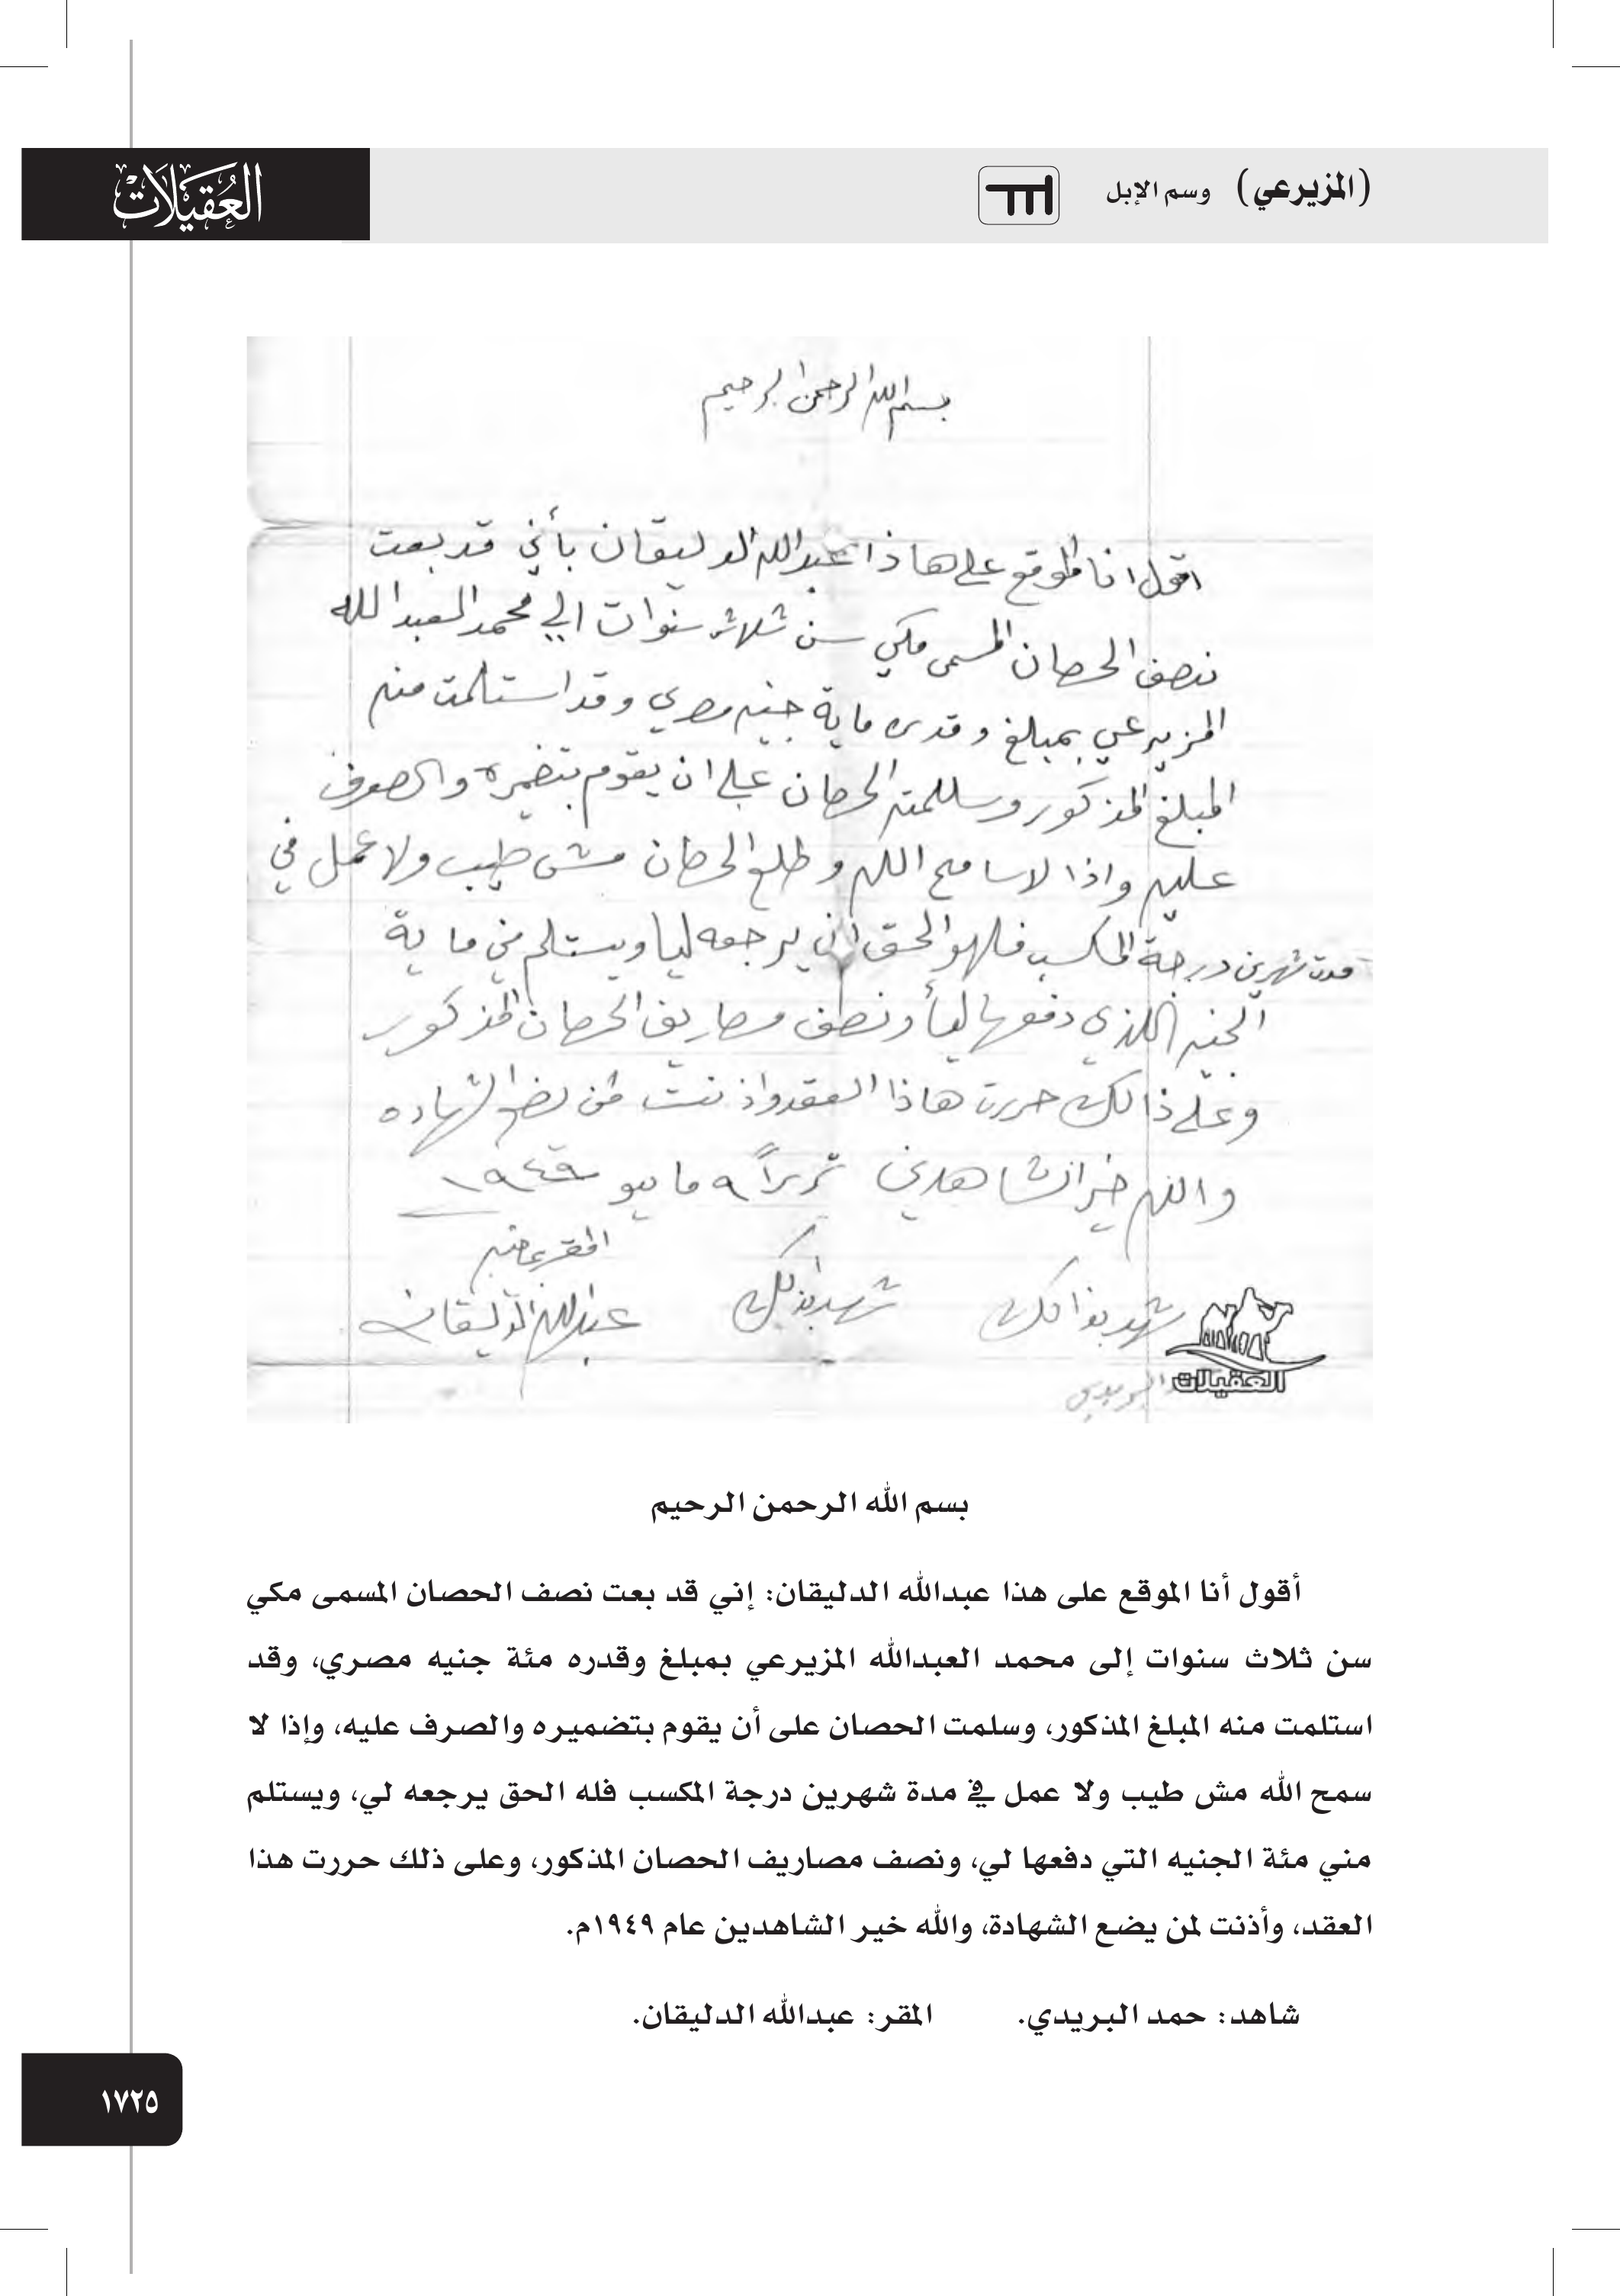 (المزيرعي) وسم الإبل
العُقيلات
بسم الله الرحمن الرحيم
اقول انا الموقع على هاذا عبدالله الدليقان بأني قد بعت
نصف الحصان المسمى مكي سن ثلاث سنوات الي محمد العبدالله
المزيرعي بمبلغ وقدره ماية جنيه مصري وقد استلمت منه
المبلغ المذكور وسللمته الحصان على ان يقوم بتضميره والصرف
عليه واذا لاسامح الله وطلع الحصان مش طيب ولا عمل في
مدت شهرين درجة المكسب فلهو الحق ان يرجعه ليا ويستلم مني ماية
الجنيه اللذي دفعها ليا ونصف مصاريف الحصان المذكور
وعلى ذالك حررت هاذا العقد واذنت لمن يضع الشهاده
والله خير الشاهدين تحريراً ٩ مايو ١٩٤٩
المقر بما فيه
شهد بذالك شهد بذلك عبدالله الدليقان
البريدي
العقيلات
بسم الله الرحمن الرحيم
أقول أنا الموقع على هذا عبدالله الدليقان: إني قد بعت نصف الحصان المسمى مكي
سن ثلاث سنوات إلى محمد العبدالله المزيرعي بمبلغ وقدره مئة جنيه مصري، وقد
استلمت منه المبلغ المذكور، وسلمت الحصان على أن يقوم بتضميره والصرف عليه، وإذا لا
سمح الله مش طيب ولا عمل في مدة شهرين درجة المكسب فله الحق يرجعه لي، ويستلم
مني مئة الجنيه التي دفعها لي، ونصف مصاريف الحصان المذكور، وعلى ذلك حررت هذا
العقد، وأذنت لمن يضع الشهادة، والله خير الشاهدين عام ١٩٤٩م.
شاهد: حمد البريدي. المقر: عبدالله الدليقان.
١٧٢٥